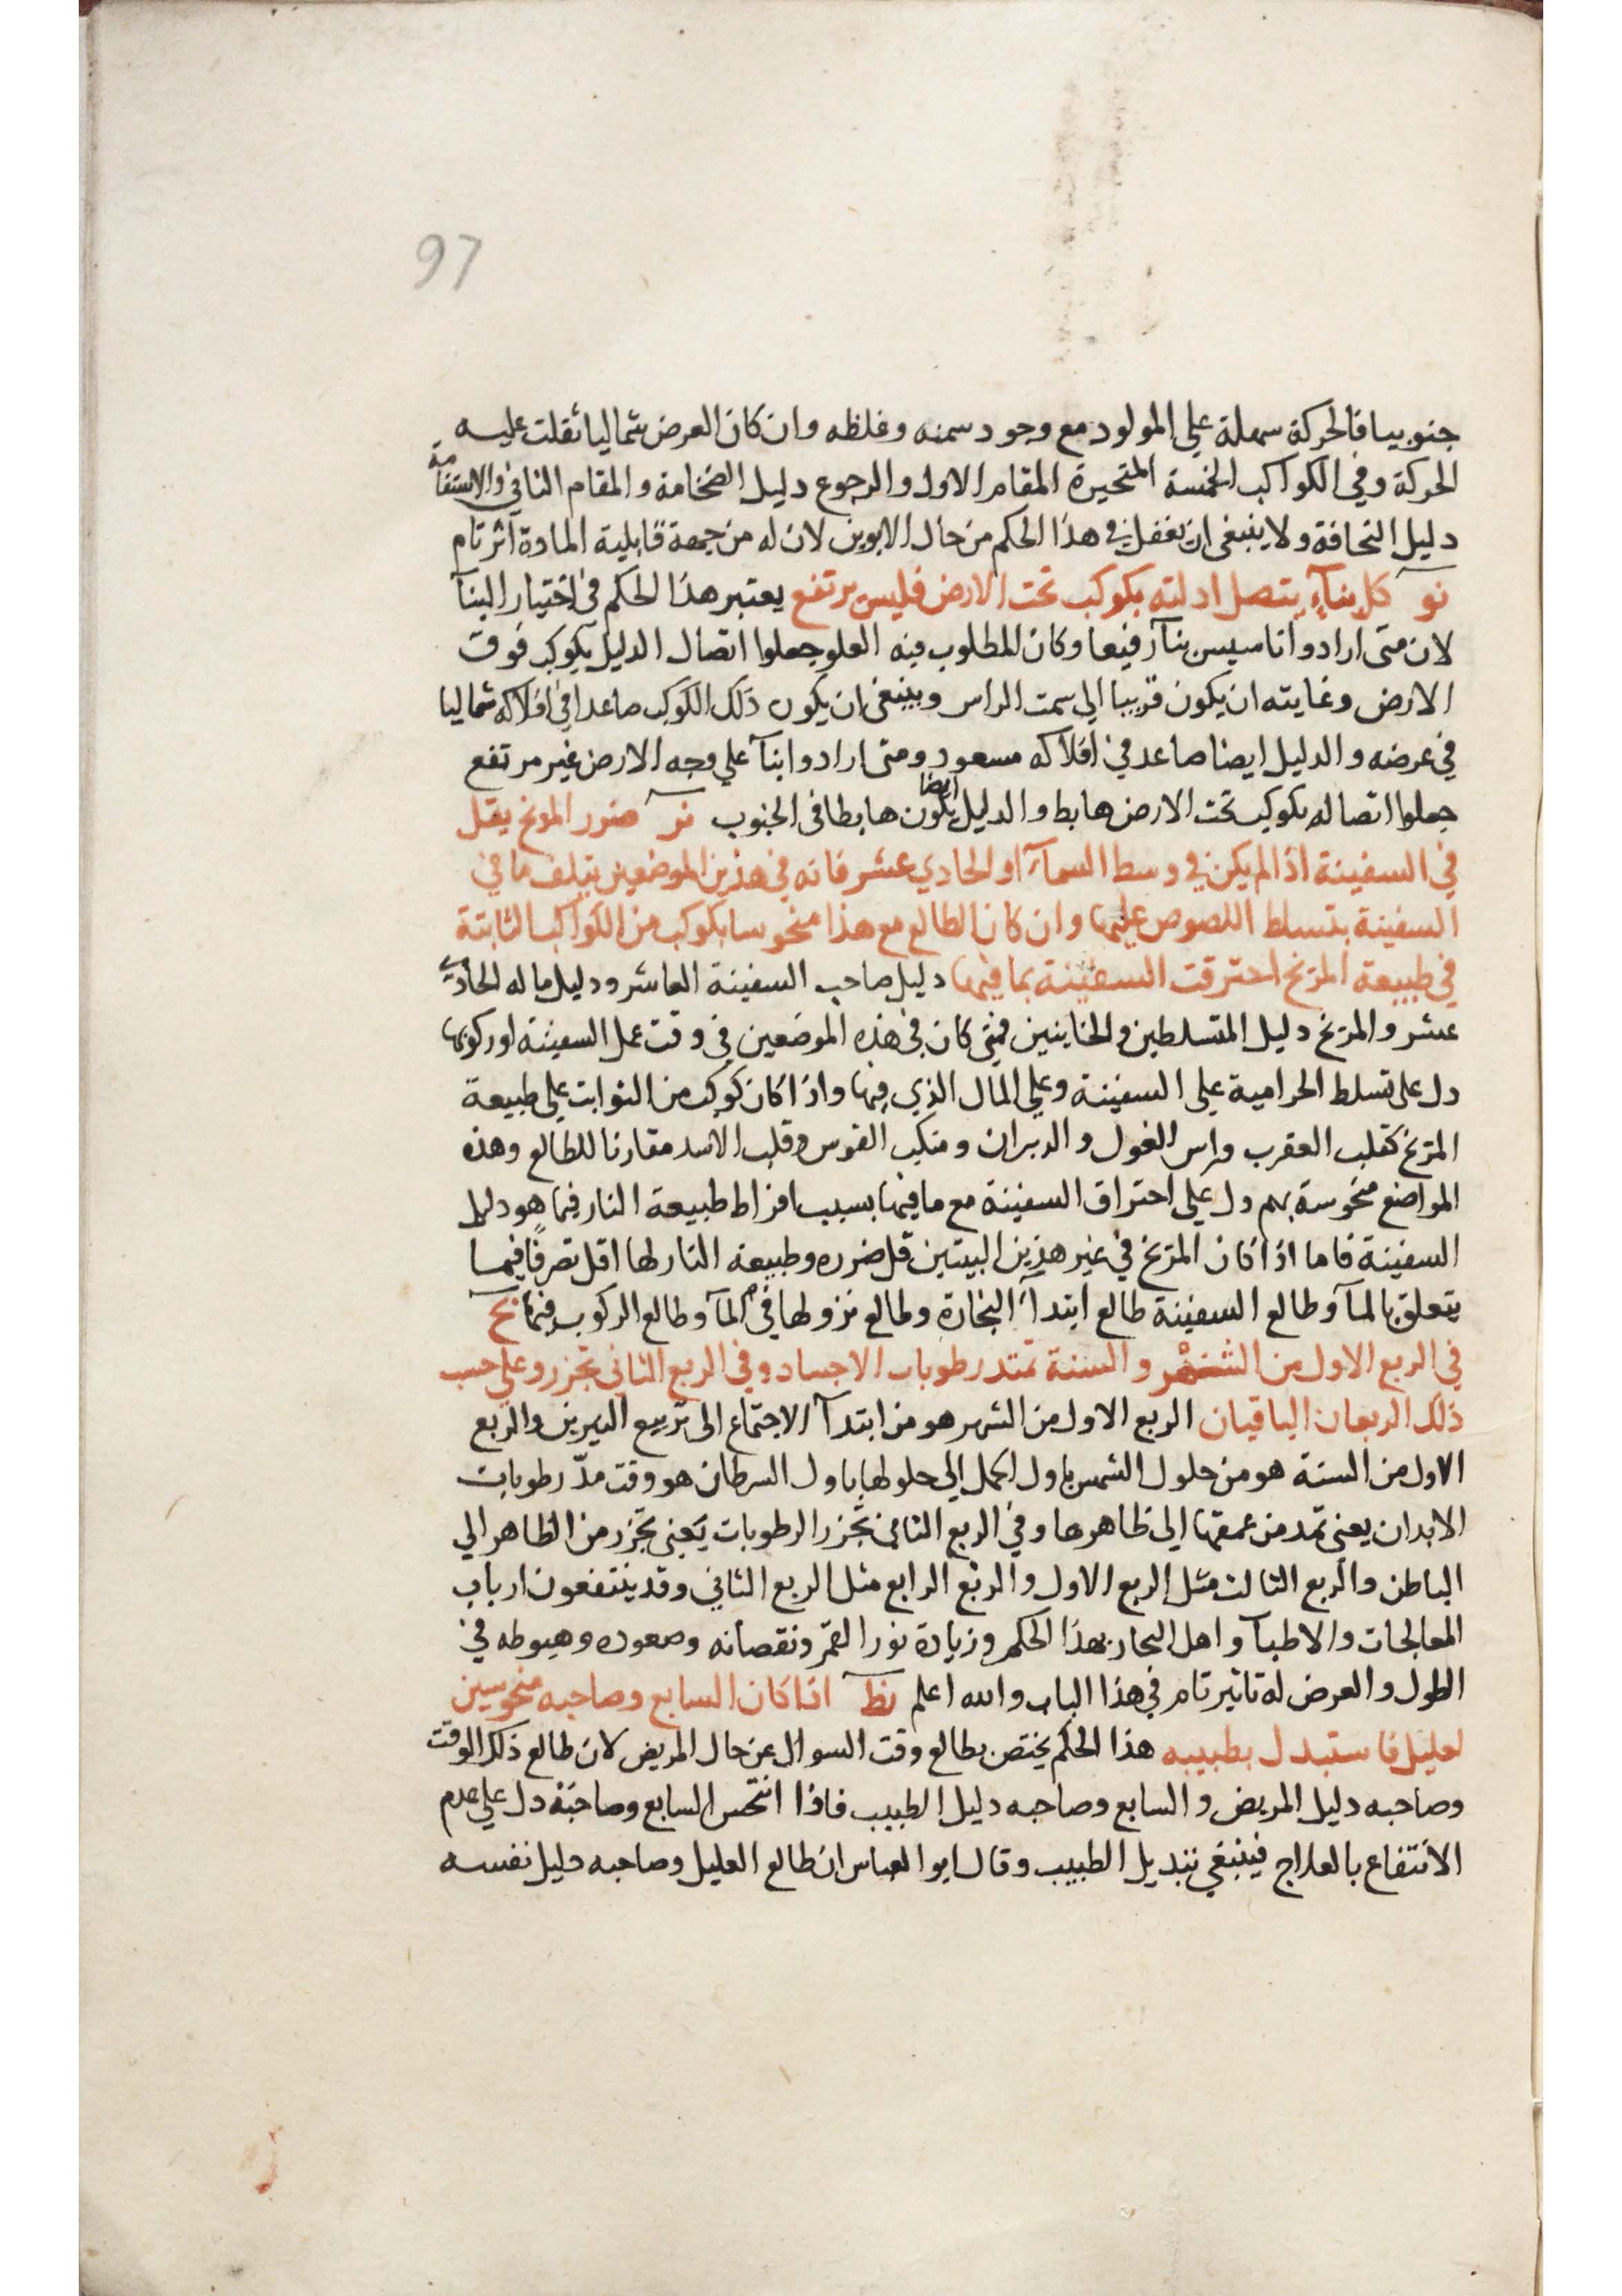 97
جنوبيا فالحركة سهلة علي المولود مع وجود سمنه وغلظه وان كان العرض شماليا ثقلت عليه
الحركة وفي الكواكب الخمسة المتحيرة المقام الاول والرجوع دليل الضخامة والمقام الثاني والاستقامة
دليل النحافة ولا ينبغي ان يغفل في هذا الحكم من حال الابوين لان له من جهة قابلية المادة اثر تام
نو كل بناء يتصل ادلته بكوكب تحت الارض فليس يرتفع يعتبر هذا الحكم في اختيار البنآ
لان متى ارادوا تاسيس بنآ رفيعا وكان المطلوب فيه العلو جعلوا اتصال الدليل بكوكب فوق
الارض وغايته ان يكون قريبا الي سمت الراس وينبغي ان يكون ذلك الكوكب صاعدا في افلاكه شماليا
في عرضه والدليل ايضا صاعد في افلاكه مسعود ومتى ارادوا بنآ علي وجه الارض غير مرتفع
جعلوا اتصاله بكوكب تحت الارض هابط والدليل ايضا يكون هابطا في الجنوب نز ضرر المريخ يقل
في السفينة اذا لم يكن في وسط السمآء او الحادي عشر فانه في هذين الموضعين يتلف ما في
السفينة بتسلط اللصوص عليها وان كان الطالع مع هذا منحوسا بكوكب من الكواكب الثابتة
في طبيعة المريخ احترقت السفينة بما فيها دليل صاحب السفينة العاشر ودليل ماله الحادي
عشر والمريخ دليل المتسلطين والخاينين فمتى كان في هذه الموضعين في وقت عمل السفينة او ركوبها
دل على تسلط الحرامية على السفينة وعلي المال الذي فيها واذا كان كوكب من الثوابت علي طبيعة
المريخ كقلب العقرب وراس الغول والدبران ومنكب الفوس وقلب الاسد مقارنا للطالع وهذه
المواضع منحوسة بهم دل علي احتراق السفينة مع ما فيها بسبب افراط طبيعة النار فيما هو دليل
السفينة فاما اذا كان المريخ في غير هذين البيتين قل ضرره وطبيعة النار لها اقل تصرفا فيما
يتعلق بالمآ وطالع السفينة طالع ابتدآء النجارة وطالع نزولها في المآ وطالع الركوب فيها نح
في الربع الاول من الشهر والسنة تمتد رطوبات الاجساد وفي الربع الثاني تجزر وعلي حسب
ذلك الربعان الباقيان الربع الاول من الشهر هو من ابتدآ الاجتماع الى تربيع النيرين والربع
الاول من السنة هو من حلول الشمس باول الحمل الي حلولها باول السرطان هو وقت مدّ رطوبات
الابدان يعنى تمد من عمقها الى ظاهرها وفي الربع الثاني تجزر الرطوبات يعنى تجزر من الظاهر الي
الباطن والربع الثالث مثل الربع الاول والربع الرابع مثل الربع الثاني وقد ينتفعون ارباب
المعالجات والاطبآ واهل البحار بهذا الحكم وزيادة نور القمر ونقصانه وصعوده وهبوطه في
الطول والعرض له تاثير تام في هذا الباب والله اعلم نط اذا كان السابع وصاحبه منحوسين
لعليل فاستبدل بطبيبه هذا الحكم يختص بطالع وقت السوال عن حال المريض لان طالع ذلك الوقت
وصاحبه دليل المريض والسابع وصاحبه دليل الطبيب فاذا انتحس السابع وصاحبه دل علي عدم
الانتفاع بالعلاج فينبغي تبديل الطبيب وقال ابو العباس ان طالع العليل وصاحبه دليل نفسه